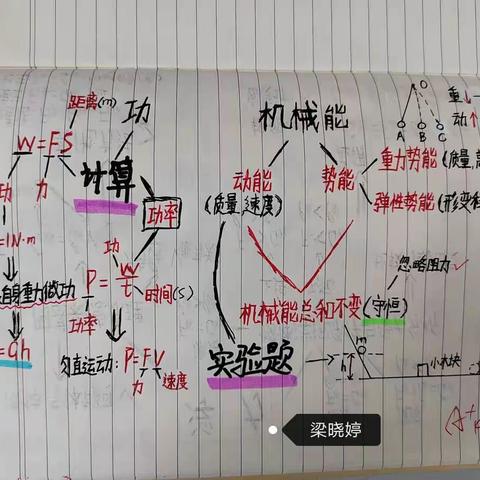 距离(m)
功
W=FS
力
计算
功
=1N·m
功率
功
P=W/t
时间(s)
自身重力做功
功率
=Gh
匀直运动:P=FV
力
速度
机械能
动能
(质量,速度)
势能
重力势能(质量,高
弹性势能(形变程
机械能总和不变(守恒)
忽略阻力✓
实验题
m
h
小木块
O
A B C
重↓
动↑
A+
梁晓婷